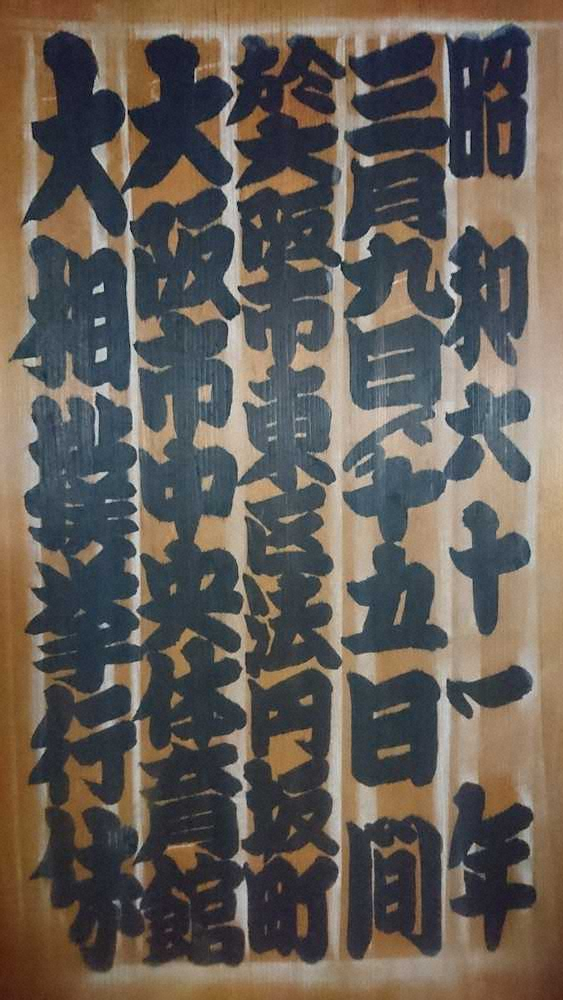 昭和六十一年
三月九日十五日間
於大阪市東区法円坂町
大阪市中央体育館
大相撲挙行仕候